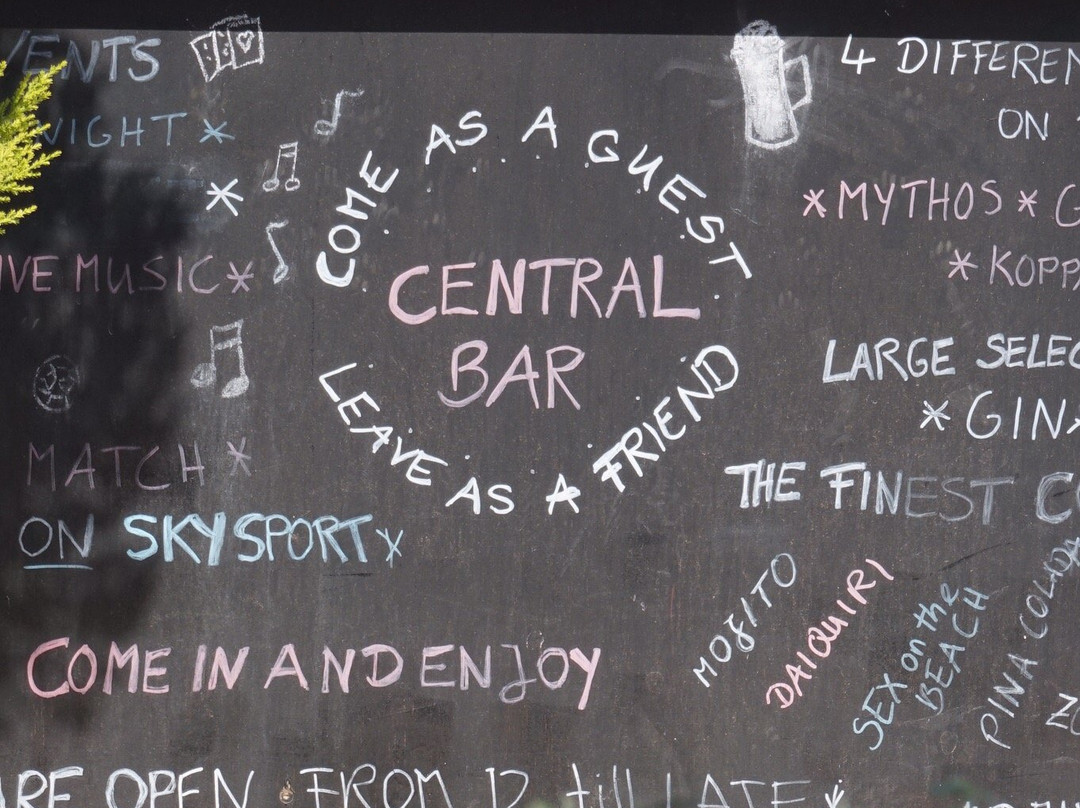 VENTS
NIGHT *
*
IVE MUSIC *
MATCH *
ON SKYSPORT *
COME AS A GUEST
CENTRAL
BAR
LEAVE AS A FRIEND
COME IN AND ENJOY
4 DIFFEREN
ON
* MYTHOS * G
* KOPPA
LARGE SELEC
* GIN *
THE FINEST CO
MOJITO
DAIQUIRI
SEX on the
BEACH
PINA COLADA
ARE OPEN FROM 12 till LATE *